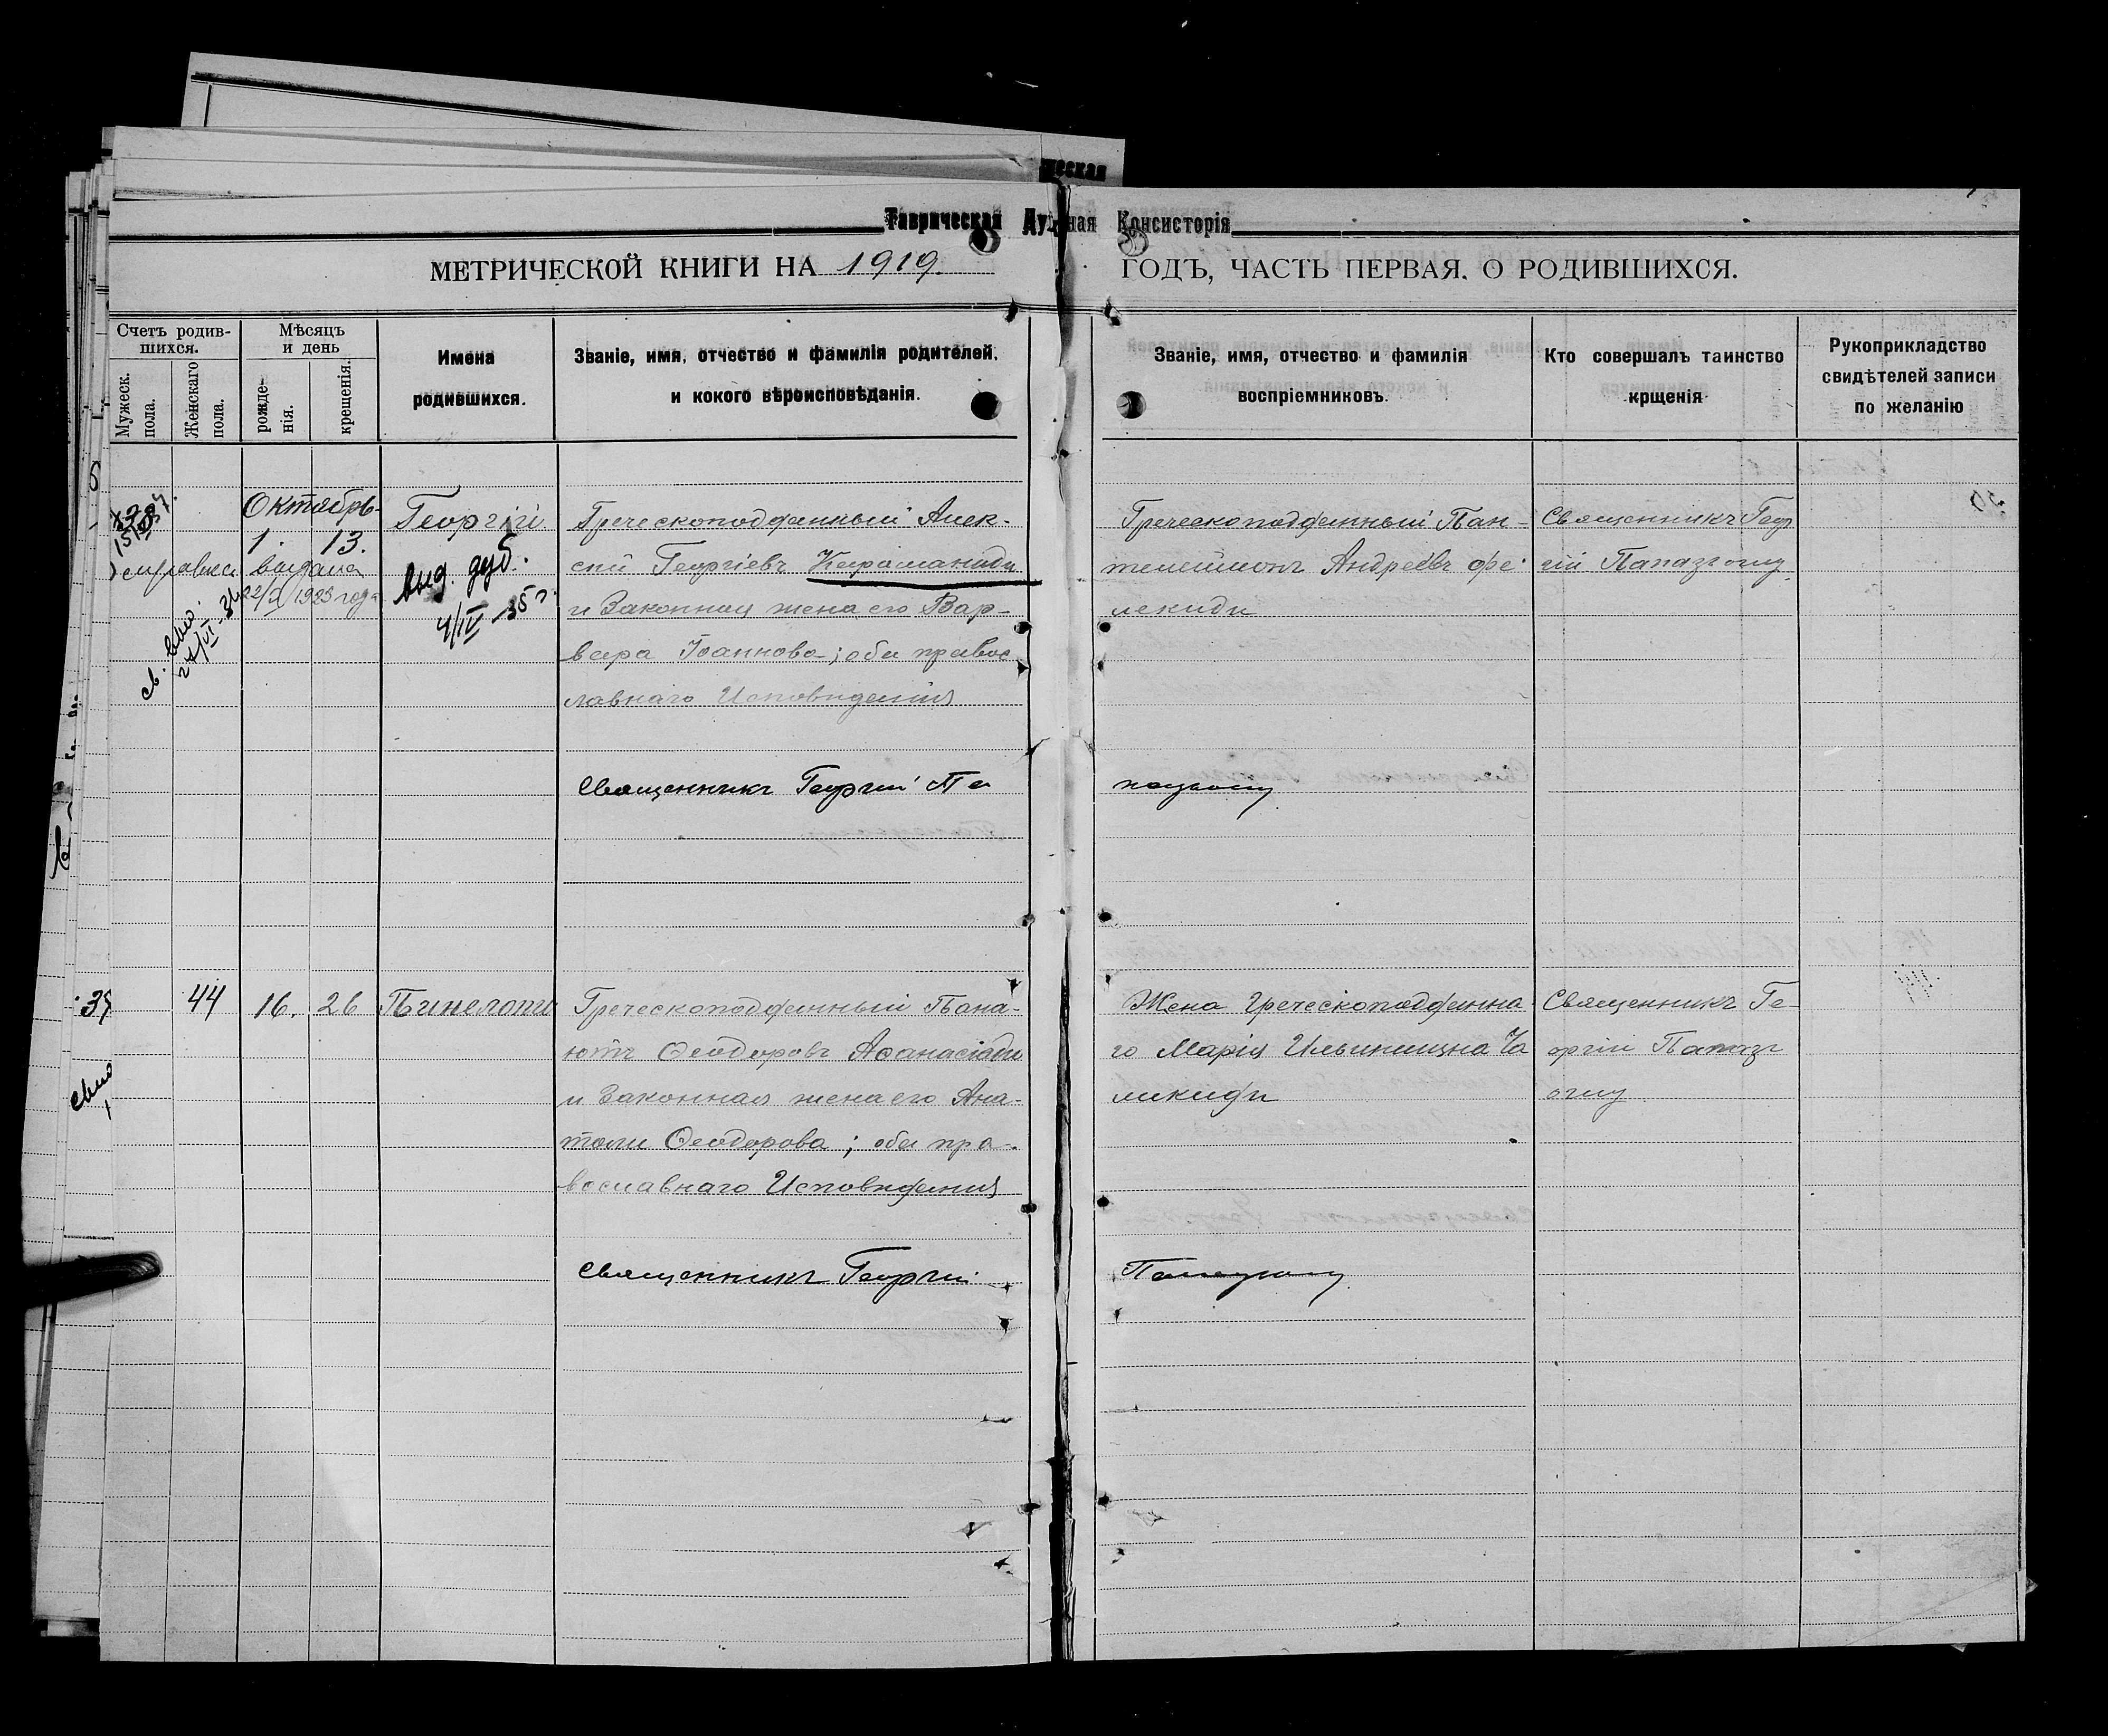 Таврическая Духная Консисторія
МЕТРИЧЕСКОЙ КНИГИ НА 1919 ГОДЪ, ЧАСТЬ ПЕРВАЯ. О РОДИВШИХСЯ.
Счетъ родив-
шихся.
Мужеск.
пола.
Женскаго
пола.
Мѣсяцъ
и день
рожде-
нія.
крещенія.
Имена
родившихся.
Званіе, имя, отчество и фамилія родителей,
и кокого вѣроисповѣданія.
Званіе, имя, отчество и фамилія
воспріемниковъ.
Кто совершалъ таинство
крщенія
Рукоприкладство
свидѣтелей записи
по желанію
Октябрь
1. 13.
справка выдана
22/X 1923 года
св. выд.
27/VI-34
Георгій
выд. дуб.
4/IV-35 г.
Греческоподданный Алек-
сѣй Георгіевъ Караманиди
и Законная жена его Вар-
вара Іоаннова; оба правос
лавнаго Исповѣданія
Священникъ Георгій Па
Греческоподданный Пан-
телеймонъ Андреевъ Фе
лекиди
Священникъ Геор
гій Папазъ оглу
пазъоглу
44 16. 26
Пинелопи
Греческоподданный Пана-
іотъ Ѳеодоровъ Аѳанасіади
и Законная жена его Ана-
толи Ѳеодорова; оба пра-
вославнаго Исповѣданія
Священникъ Георгій
Жена Греческоподданна
го Марія Ильинишна Ча
ликиди
Священникъ Ге-
оргій Папазъ
оглу
Папазъоглу